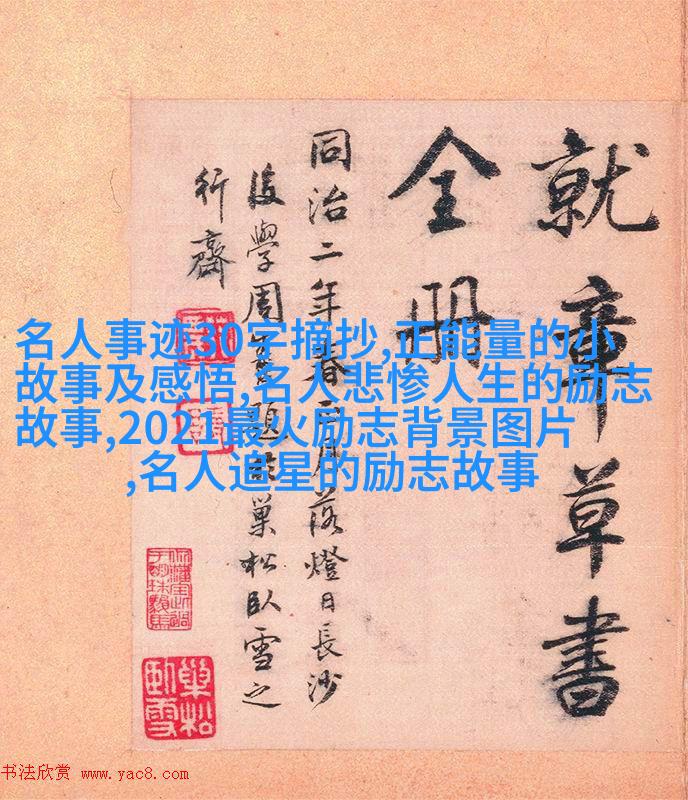 就章草書
全冊
同治二年春二月落燈日長沙
後學周題於巢松臥雪之
行齋
名人事迹30字摘抄,正能量的小
故事及感悟,名人悲惨人生的励志
故事,2021最火励志背景图片
,名人追星的励志故事
巢松
臥雪
书法欣赏 www.yac8.com